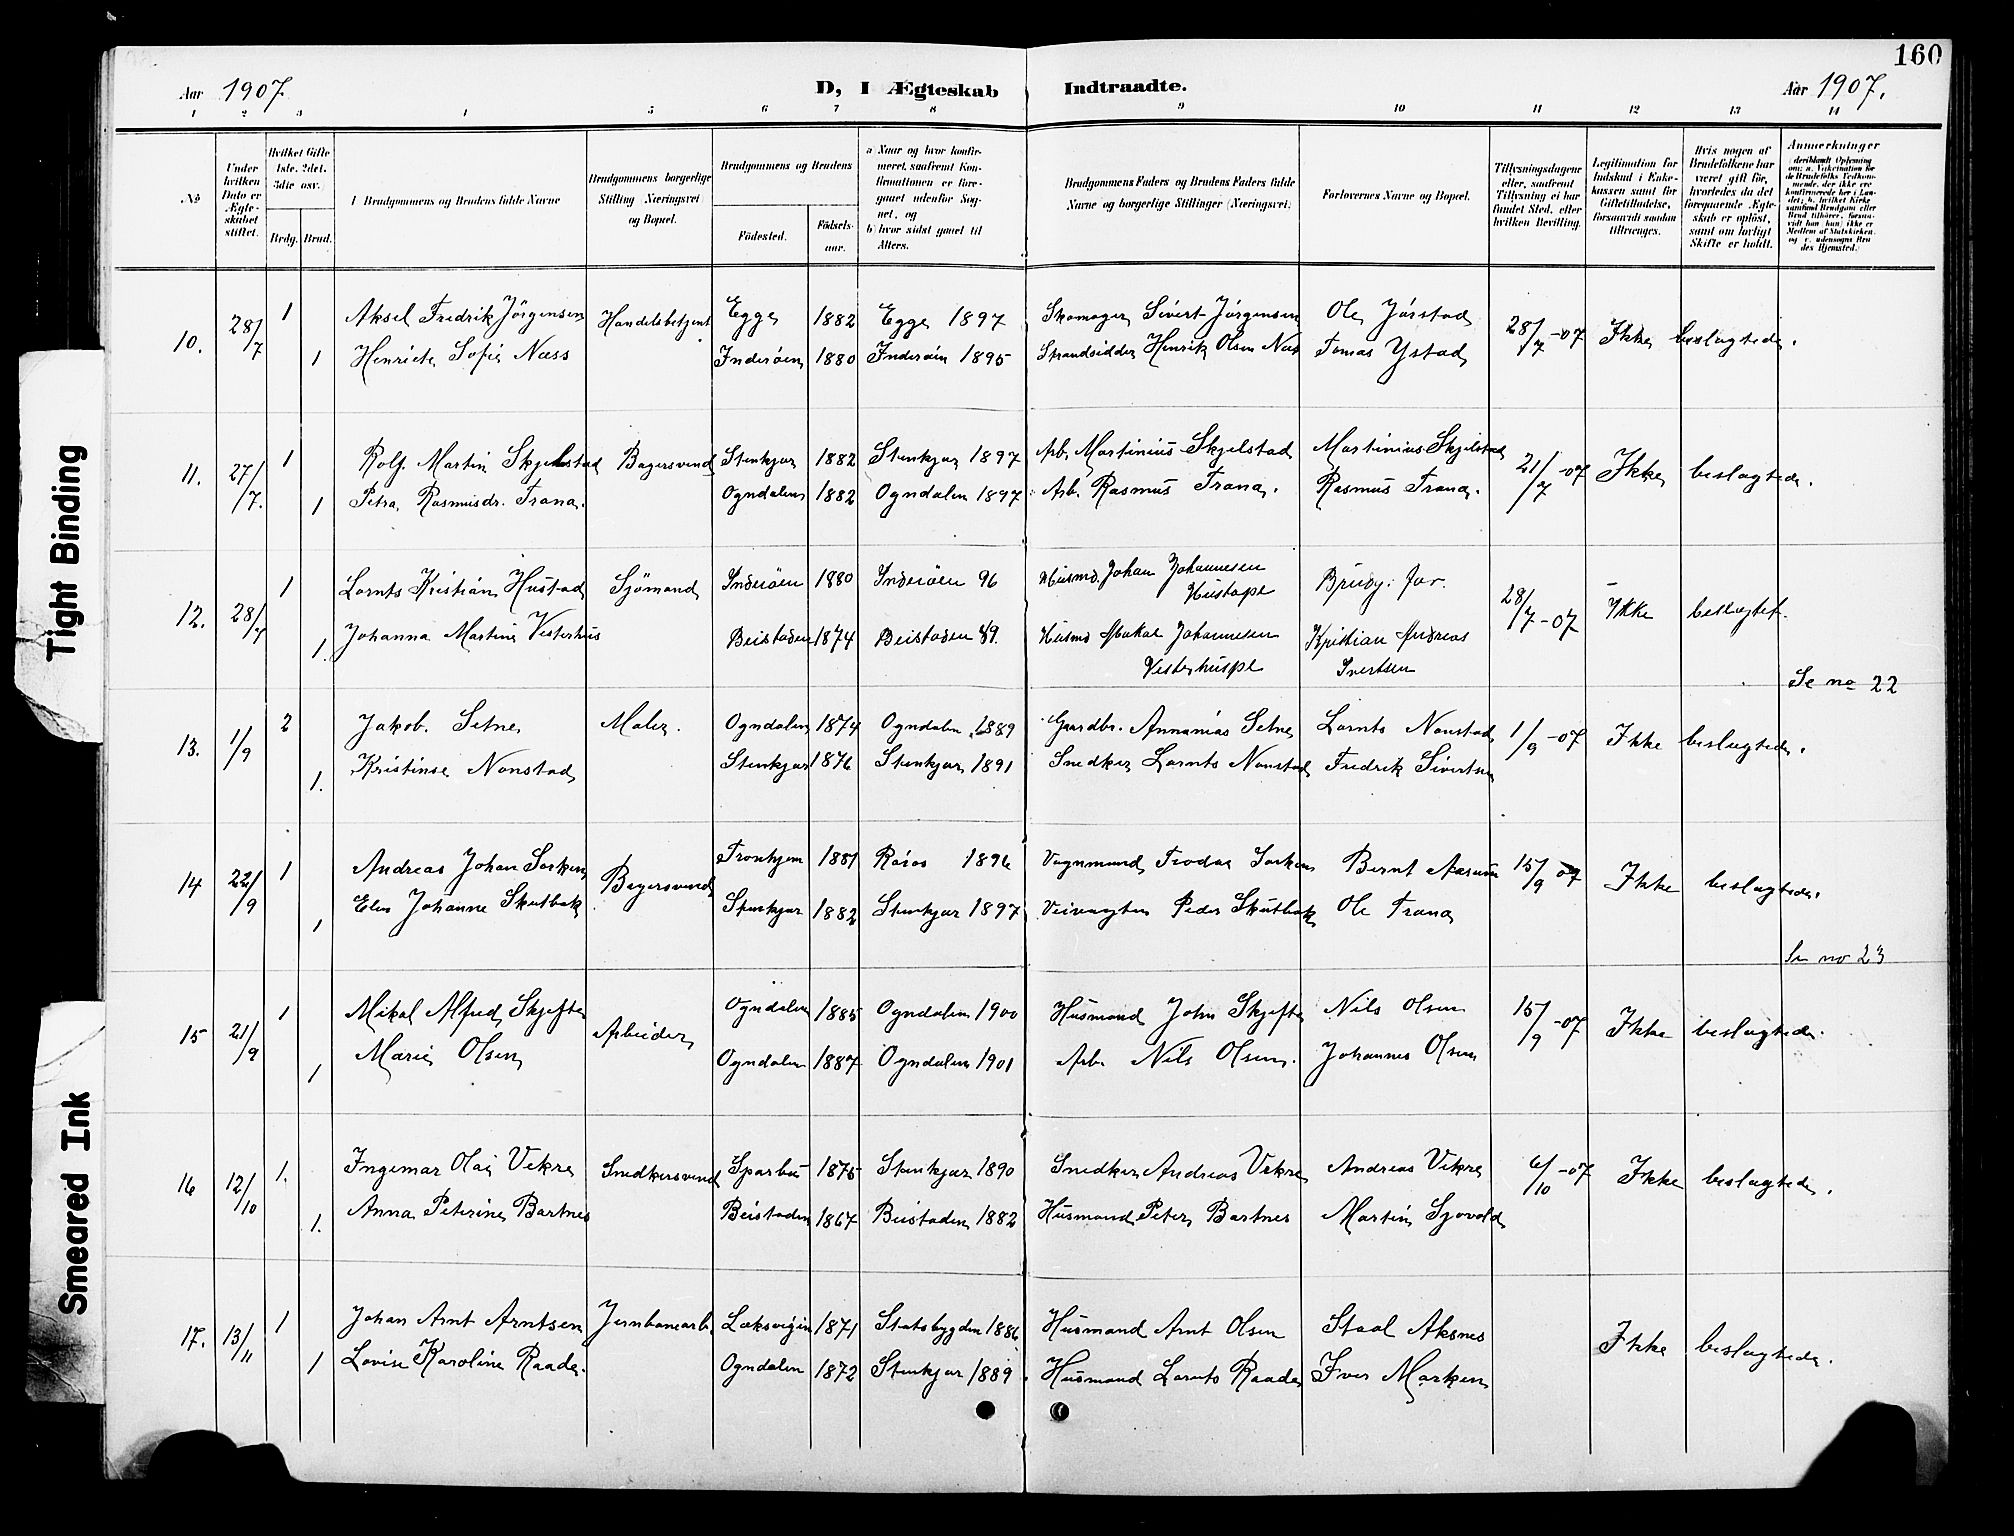 160
Aar 1907. D, I Ægteskab Indtraadte. Aar 1907.
1 2 3 4 5 6 7 8 9 10 11 12 13 14
No
Under hvilken Dato er Ægteskabet stiftet.
Hvilket Gifte 1ste, 2det, 3die osv.)
Brdg. Brud.
1 Brudgommens og Brudens fulde Navne
Brudgommens borgerlige Stilling (Næringsvei) og Bopæl.
Brudgommens og Brudens
Fødested.
Fødselsaar.
a) Naar og hvor konfirmeret, saafremt Konfirmationen er foregaaet udenfor Sognet, og
b) hvor sidst gaaet til Alters.
Brudgommens Faders og Brudens Faders fulde Navne og borgerlige Stillinger (Næringsvei)
Forlovernes Navne og Bopæl.
Tillysningsdagene eller, saafremt Tillysning ei har fundet Sted, efter hvilken Bevilling.
Legitimation for Indskud i Enkekassen samt for Giftetilladelse, forsaavidt saadan tiltrænges.
Hvis nogen af Brudefolkene har været gift før, hvorledes da det foregaaende Ægteskab er opløst, samt om lovligt Skifte er holdt.
Anmerkninger
10. 28/7 1 Aksel Fredrik Jörgensen Handelsbetjent Egge 1882 Egge 1897 Skomager Sivert Jörgensen Ole Jörstad 28/7-07 Ikke beslægtede.
1 Henriete Sofie Næss Inderöen 1880 Inderöen 1895 Strandsidder Henrik Olsen Næs Tomas Ystad
11. 27/7. 1 Rolf Martin Skjelstad Bagersvend Stenkjær 1882 Stenkjær 1897 Arb. Martinius Skjelstad Martinius Skjelstad 21/7-07 Ikke beslægtede.
1 Petra Rasmusdr. Trana. Ogndalen 1882 Ogndalen 1897 Arb. Rasmus Trana. Rasmus Trana.
12. 28/7 1 Lornts Kristian Hustad Sjömand Inderöen 1880 Inderöen 96 Husmd. Johan Johannesen Brudg. far. 28/7-07 Ikke beslægtet.
Hustadpl
1. Johanna Martine Vesterhus Beistaden 1874 Beistaden 89. Husmd Mikal Johannesen Kristian Andreas
Vesterhuspl Ivertsen
Se no 22
13. 1/9 2 Jakob Setne Maler. Ogndalen 1874 Ogndalen 1889 Gaardbr. Annanias Setne Lornts Nonstad 1/9-07 Ikke beslægtede.
1. Kristinse Nonstad Stenkjær 1876 Stenkjær 1891 Snedker Lornts Nonstad Fredrik Sivertsen
14 22/9 1 Andreas Johan Sorken Bagersvend Tronhjem 1881 Röros 1896 Vognmand Sorken Bernt Aasum 15/9 07 Ikke beslægtede.
1 Elen Johanne Skutbak Stenkjær 1882 Stenkjær 1897 Veivogter Peder Skutbak Ole Trana
Se no 23
15 21/9 1 Mikal Alfred Skjefte Arbeider Ogndalen 1885 Ogndalen 1900 Husmand John Skjefte Nils Olsen 15/9-07 Ikke beslægtede.
1 Marie Olsen Ogndalen 1887 Ogndalen 1901 Arb. Nils Olsen. Johannes Olsen
16 12/10 1. Ingemar Olai Vekre Snedkersvend Sparbu 1875 Stenkjær 1890 Snedker Andreas Vekre Andreas Vekre 6/10-07 Ikke beslægtede.
1. Anna Peterine Bartnes Beistaden 1867 Beistaden 1882 Husmand Peter Bartnes Martin Sjovold
17. 13/11 1 Johan Arnt Arntsen Jernbanearb. Leksvigen 1871 Statsbygden 1886 Husmand Arnt Olsen Staal Aksnes Ikke beslægtede.
1 Lovise Karoline Raade. Ogndalen 1872 Stenkjær 1889 Husmand Lornts Raade Iver Marken
Tight Binding
Smeared Ink